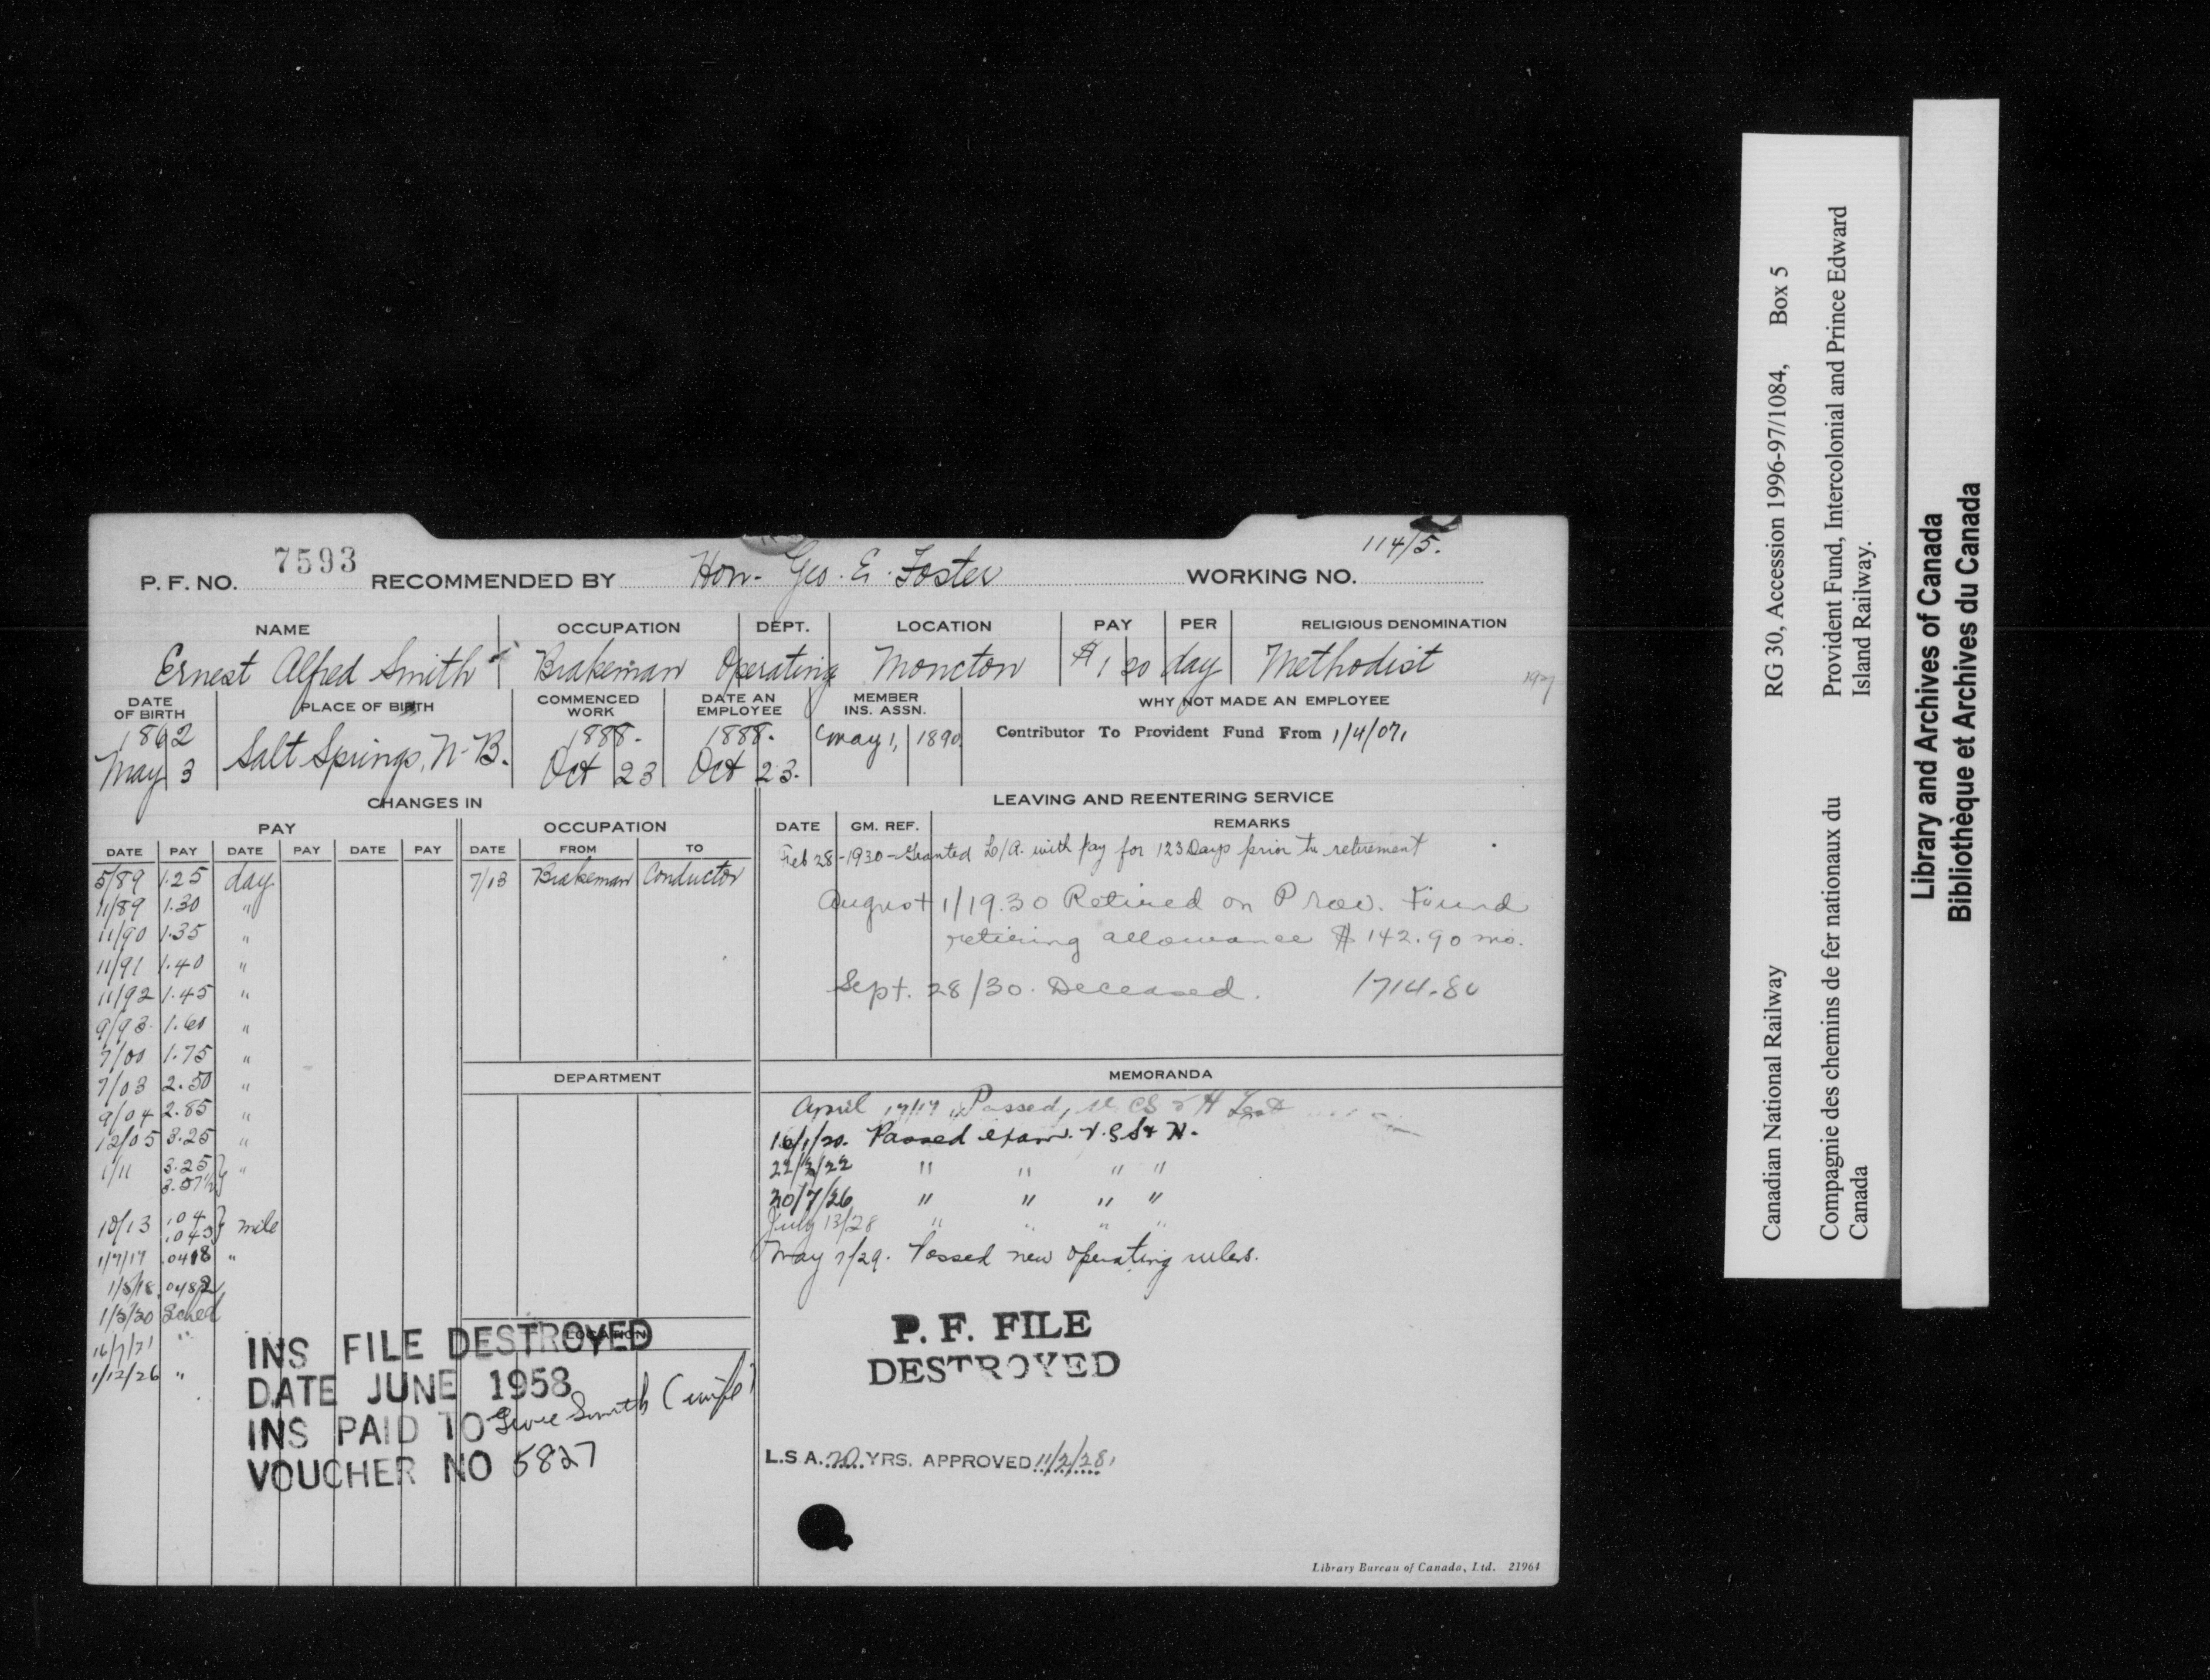 7593
114/5.
P. F. NO. RECOMMENDED BY Hon. Geo. E. Foster WORKING NO.
NAME OCCUPATION DEPT. LOCATION PAY PER RELIGIOUS DENOMINATION
Ernest Alfred Smith Brakeman Operating Moncton $1 20 day Methodist
DATE OF BIRTH PLACE OF BIRTH COMMENCED WORK DATE AN EMPLOYEE MEMBER INS. ASSN. WHY NOT MADE AN EMPLOYEE
1862 1888. 1888. May 1, 1890 Contributor To Provident Fund From 1/4/07.
May 3 Salt Springs, N-B. Oct 23 Oct 23.
CHANGES IN
PAY OCCUPATION
DATE PAY DATE PAY DATE PAY DATE FROM TO
5/89 1.25 day 7/13 Brakeman Conductor
11/89 1.30 "
11/90 1.35 "
11/91 1.40 "
11/92 1.45 "
9/93 1.60 "
7/00 1.75 "
7/03 2.50 "
9/04 2.85 "
12/05 3.25 "
1/11 3.25 "
3.57½
10/13 .04 mile
.043
1/7/17 .0418 "
1/5/18 .0482
1/5/20 Sched
16/7/21 "
1/12/26 "
DEPARTMENT
LOCATION
INS FILE DESTROYED
DATE JUNE 1958
INS PAID TO Smith (wife)
VOUCHER NO 5827
LEAVING AND REENTERING SERVICE
DATE GM. REF. REMARKS
Feb 28-1930-Granted L/A. with pay for 123 Days prior to retirement
August 1/19.30 Retired on Prov. Fund
retiring allowance $142.90 mo.
Sept. 28/30. Deceased. 1714.80
MEMORANDA
April 17/17 Passed, V. CS & H Test
16/1/20. Passed exam. V. C S & H.
22/3/22 " " " "
20/7/26 " " " "
July 13/28 " " " "
May 7/29. Passed new operating rules.
P. F. FILE
DESTROYED
L.S A. 20 YRS. APPROVED 11/2/28.
Library Bureau of Canada, Ltd. 21964
Canadian National Railway RG 30, Accession 1996-97/1084, Box 5
Compagnie des chemins de fer nationaux du Provident Fund, Intercolonial and Prince Edward
Canada Island Railway.
Library and Archives of Canada
Bibliothèque et Archives du Canada